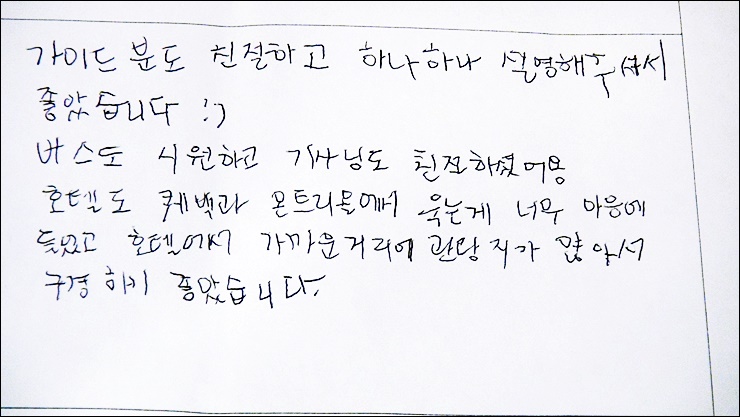 가이드 분도 친절하고 하나하나 설명해주셔서
좋았습니다 :)
버스도 시원하고 기사님도 친절하셨어용
호텔도 퀘백과 몬트리올에서 묵는게 너무 마음에
들었고 호텔에서 가까운거리에 관광지가 많아서
구경하기 좋았습니다.